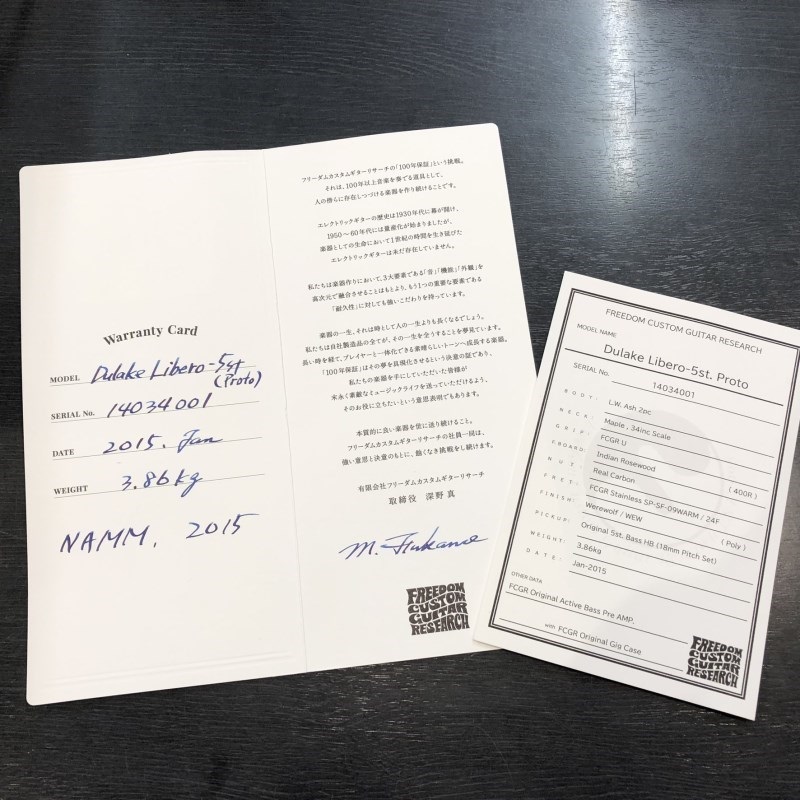 Warranty Card
MODEL Dulake Libero-5st
(Proto)
SERIAL No. 14034001
DATE 2015. Jan
WEIGHT 3.86kg
NAMM. 2015
フリーダムカスタムギターリサーチの「100年保証」という挑戦。
それは、100年以上音楽を奏でる道具として、
人の傍らに存在しつづける楽器を作り続けることです。
エレクトリックギターの歴史は1930年代に幕が開け、
1950～60年代には量産化が始まりましたが、
楽器としての生命において1世紀の時間を生き延びた
エレクトリックギターは未だ存在していません。
私たちは楽器作りにおいて、3大要素である「音」「機能」「外観」を
高次元で融合させることはもとより、もう1つの重要な要素である
「耐久性」に対しても強いこだわりを持っています。
楽器の一生、それは時として人の一生よりも長くなるでしょう。
私たちは自社製造品の全てが、その一生を全うすることを夢見ています。
長い時を経て、プレイヤーと一体化できる素晴らしいトーンへ成長する楽器。
「100年保証」はその夢を具現化させるという決意の証であり、
私たちの楽器を手にしていただいた皆様が
末永く素敵なミュージックライフを送っていただけるよう、
そのお役に立ちたいという意思表明でもあります。
本質的に良い楽器を世に送り続けること。
フリーダムカスタムギターリサーチの社員一同は、
強い意思と決意のもとに、飽くなき挑戦をし続けます。
有限会社フリーダムカスタムギターリサーチ
取締役 深野 真
M. Fukano
FREEDOM
CUSTOM
GUITAR
RESEARCH
FREEDOM CUSTOM GUITAR RESEARCH
MODEL NAME
Dulake Libero-5st. Proto
SERIAL No.
14034001
BODY: L.W. Ash 2pc
NECK: Maple , 34inc Scale
GRIP: FCGR U
F.BOARD: Indian Rosewood (400R)
NUT: Real Carbon
FRET: FCGR Stainless SP-SF-09WARM / 24F
FINISH: Werewolf / WEW (Poly)
PICKUP: Original 5st. Bass HB (18mm Pitch Set)
WEIGHT: 3.86kg
DATE: Jan-2015
OTHER DATA
FCGR Original Active Bass Pre AMP.
with FCGR Original Gig Case
FREEDOM
CUSTOM
GUITAR
RESEARCH